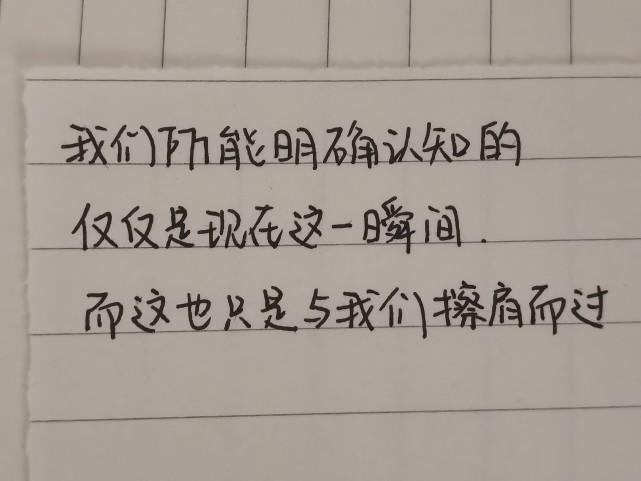 我们所能明确认知的
仅仅是现在这一瞬间.
而这也只是与我们擦肩而过